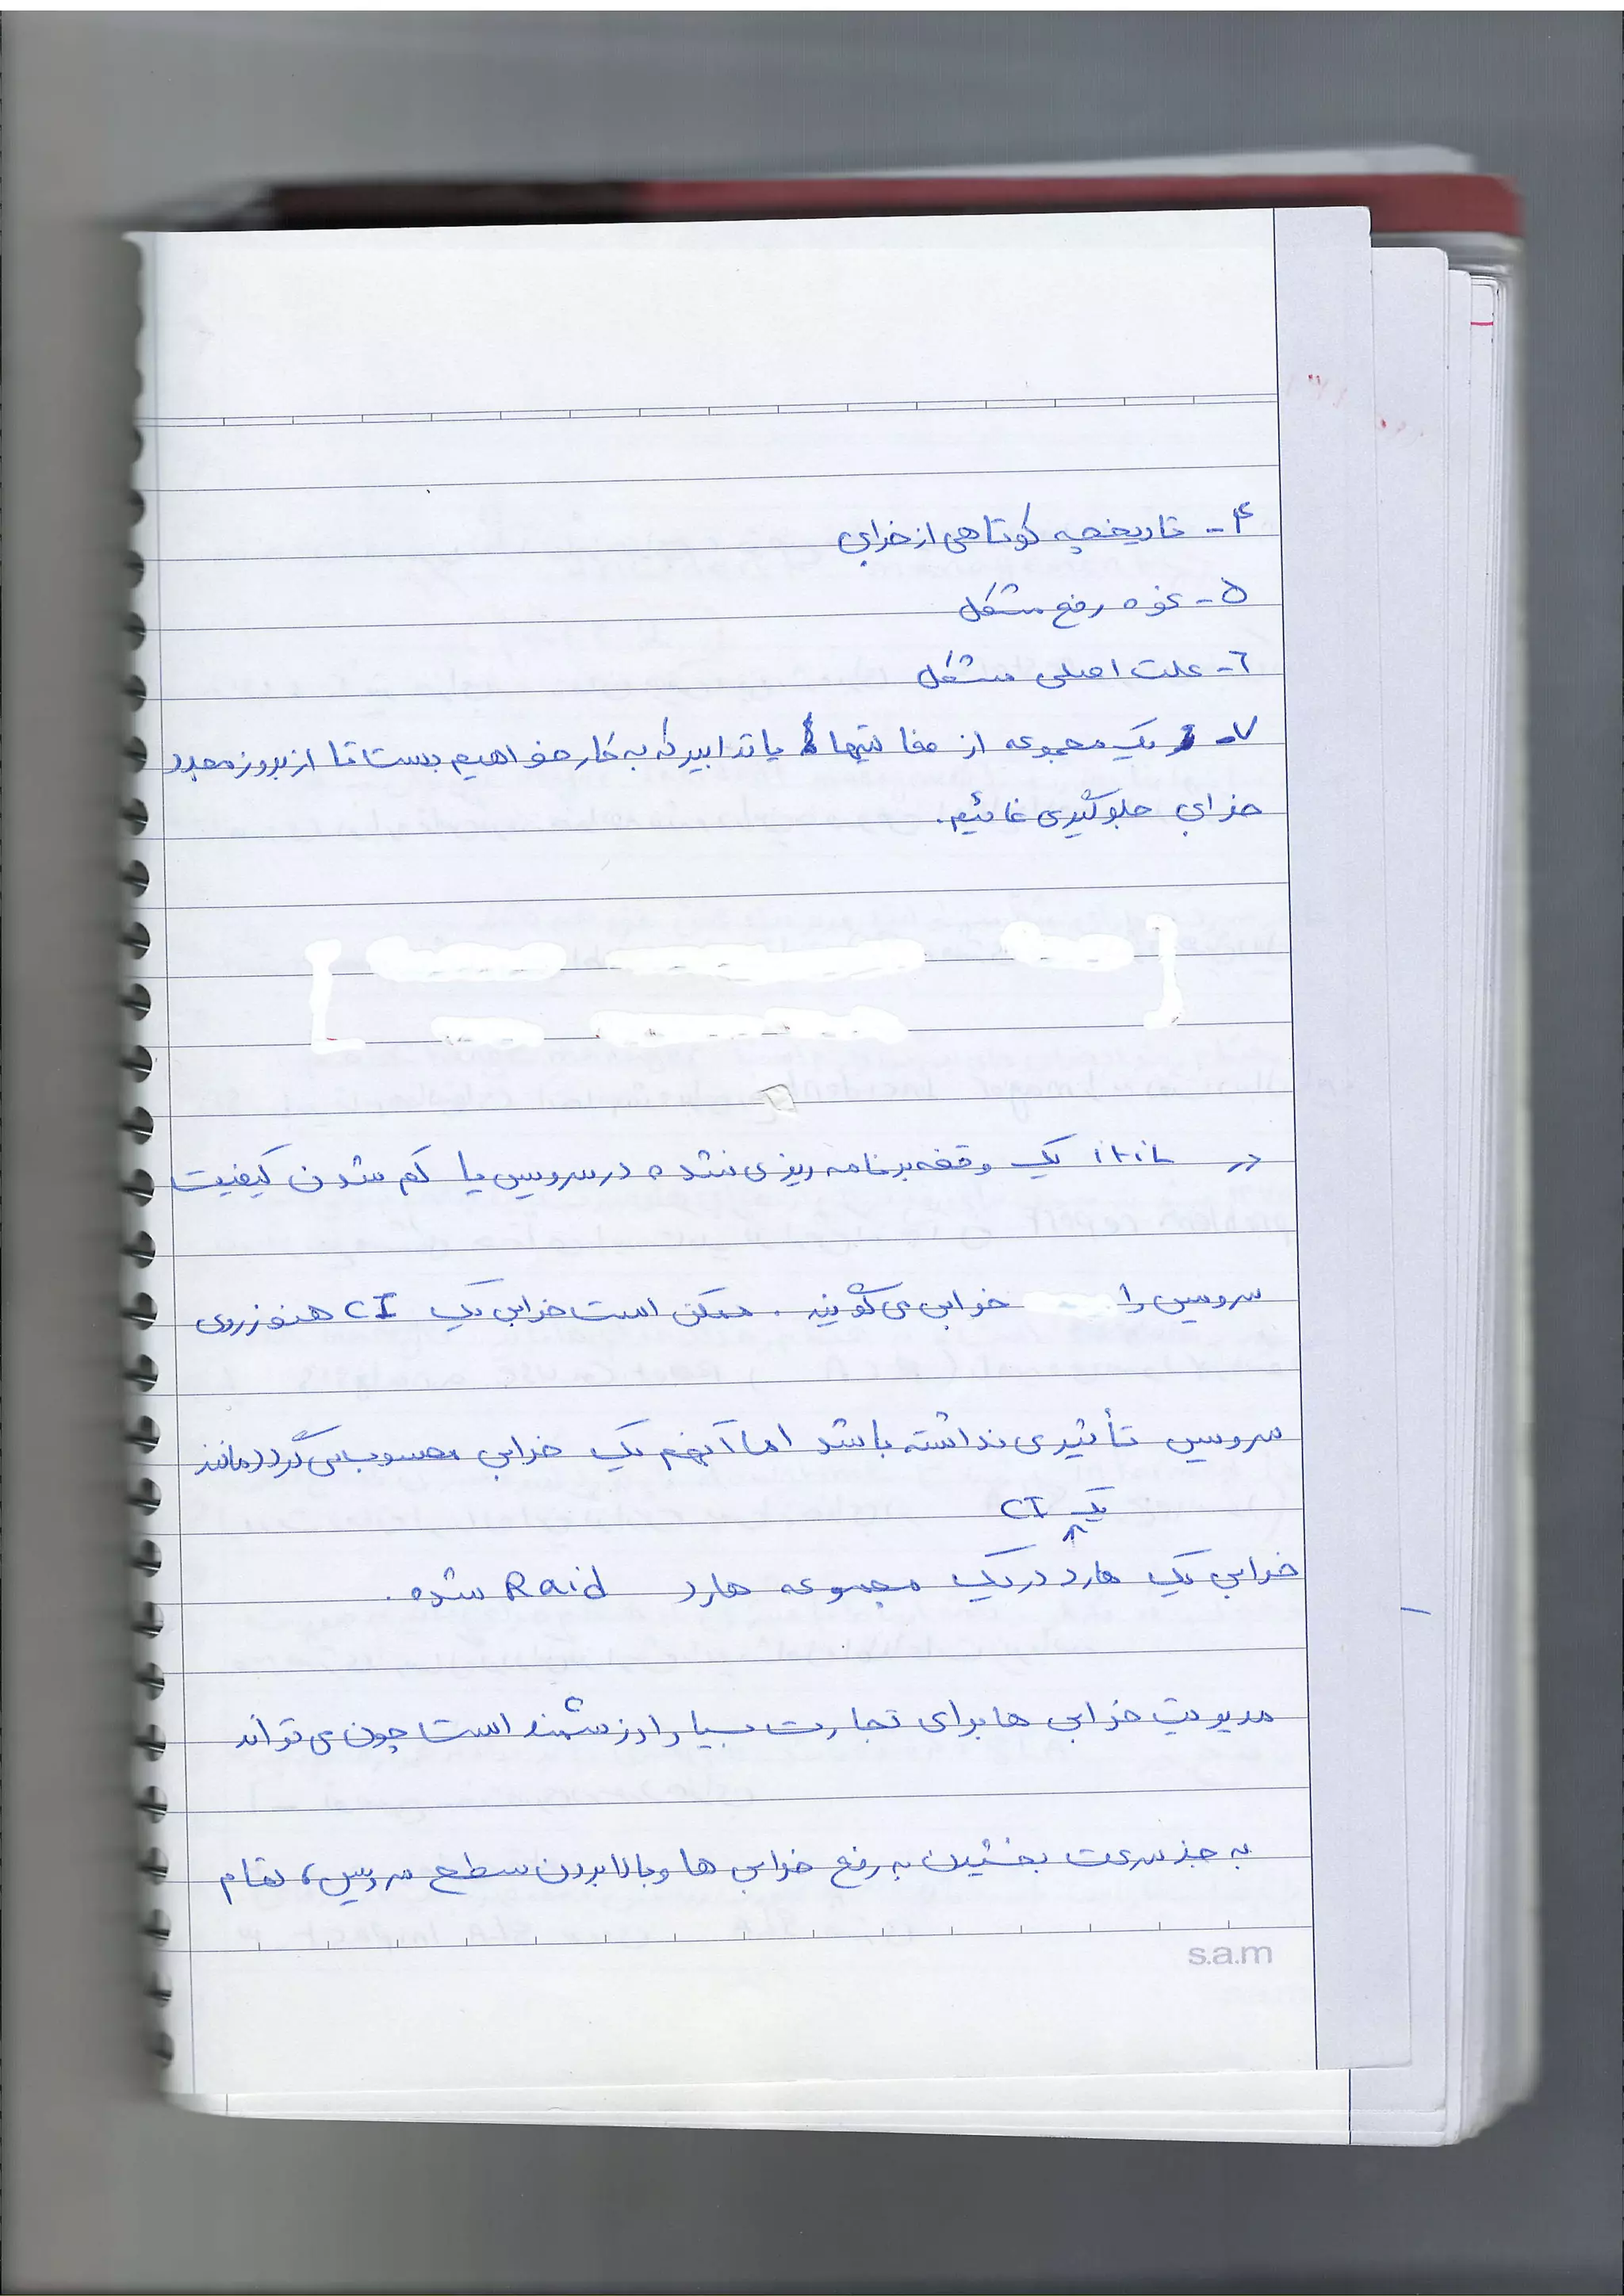 ۴- تاریخچه کوتاهی از خرابی
۵- نحوه رفع مشکل
٦- علت اصلی مشکل
۷- یک مجموعه از فعالیتها یا تدابیر که به کار خواهیم بست تا از بروز مجدد
خرابی جلوگیری نمائیم.
در itil یک وقفه برنامه ریزی نشده در سرویس یا کم شدن کیفیت
سرویس را خرابی می گویند. ممکن است خرابی یک CI هنوز روی
سرویس تأثیری نداشته باشد اما آنهم یک خرابی محسوب می گردد مانند
یک CI
خرابی یک هارد در یک مجموعه هارد Raid شده.
مدیریت خرابی ها برای تجارت بسیار ارزشمند است چون می تواند
به جز سرعت بخشیدن به رفع خرابی ها و بالا بردن سطح سرویس، تمام
s.a.m